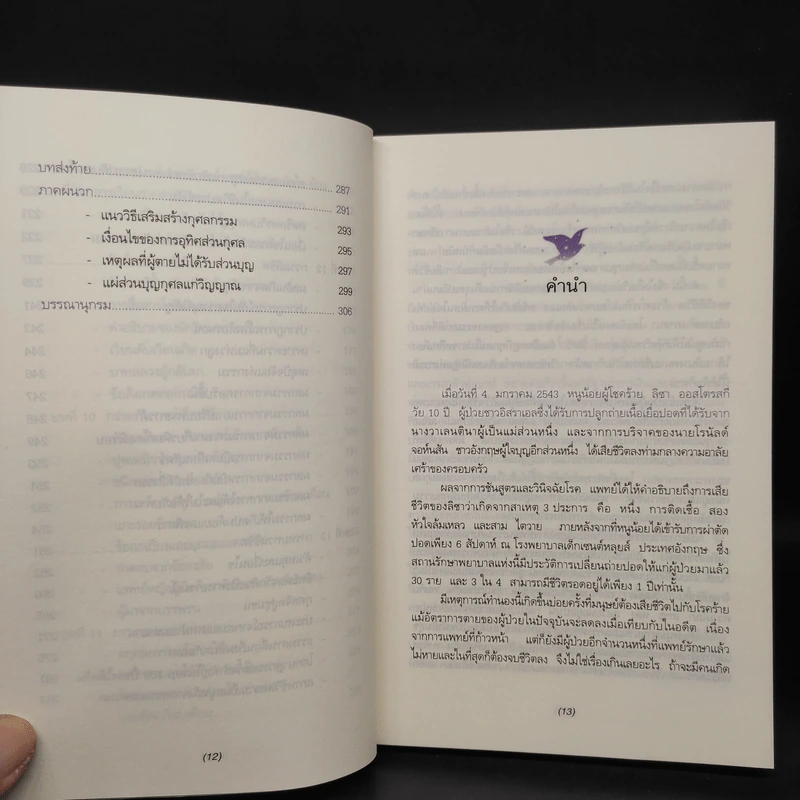 บทส่งท้าย 287
ภาคผนวก 291
- แนววิธีเสริมสร้างกุศลกรรม 293
- เงื่อนไขของการอุทิศส่วนกุศล 295
- เหตุผลที่ผู้ตายไม่ได้รับส่วนบุญ 297
- แผ่ส่วนบุญกุศลแก่วิญญาณ 299
บรรณานุกรม 306
(12)
คำนำ
เมื่อวันที่ 4 มกราคม 2543 หนูน้อยผู้โชคร้าย ลิซา ออสโตรสกี
วัย 10 ปี ผู้ป่วยชาวอิสราเอลซึ่งได้รับการปลูกถ่ายเนื้อเยื่อปอดที่ได้รับจาก
นางวาเลนตินาผู้เป็นแม่ส่วนหนึ่ง และจากการบริจาคของนายโรนัลด์
จอห์นสัน ชาวอังกฤษผู้ใจบุญอีกส่วนหนึ่ง ได้เสียชีวิตลงท่ามกลางความอาลัย
เศร้าของครอบครัว
ผลจากการชันสูตรและวินิจฉัยโรค แพทย์ได้ให้คำอธิบายถึงการเสีย
ชีวิตของลิซาว่าเกิดจากสาเหตุ 3 ประการ คือ หนึ่ง การติดเชื้อ สอง
หัวใจล้มเหลว และสาม ไตวาย ภายหลังจากที่หนูน้อยได้เข้ารับการผ่าตัด
ปอดเพียง 6 สัปดาห์ ณ โรงพยาบาลเด็กเซนต์หลุยส์ ประเทศอังกฤษ ซึ่ง
สถานรักษาพยาบาลแห่งนี้มีประวัติการเปลี่ยนถ่ายปอดให้แก่ผู้ป่วยมาแล้ว
30 ราย และ 3 ใน 4 สามารถมีชีวิตรอดอยู่ได้เพียง 1 ปีเท่านั้น
มีเหตุการณ์ทำนองนี้เกิดขึ้นบ่อยครั้งที่มนุษย์ต้องเสียชีวิตไปกับโรคร้าย
แม้อัตราการตายของผู้ป่วยในปัจจุบันจะลดลงเมื่อเทียบกับในอดีต เนื่อง
จากการแพทย์ที่ก้าวหน้า แต่ก็ยังมีผู้ป่วยอีกจำนวนหนึ่งที่แพทย์รักษาแล้ว
ไม่หายและในที่สุดก็ต้องจบชีวิตลง จึงไม่ใช่เรื่องเกินเลยอะไร ถ้าจะมีคนเกิด
(13)